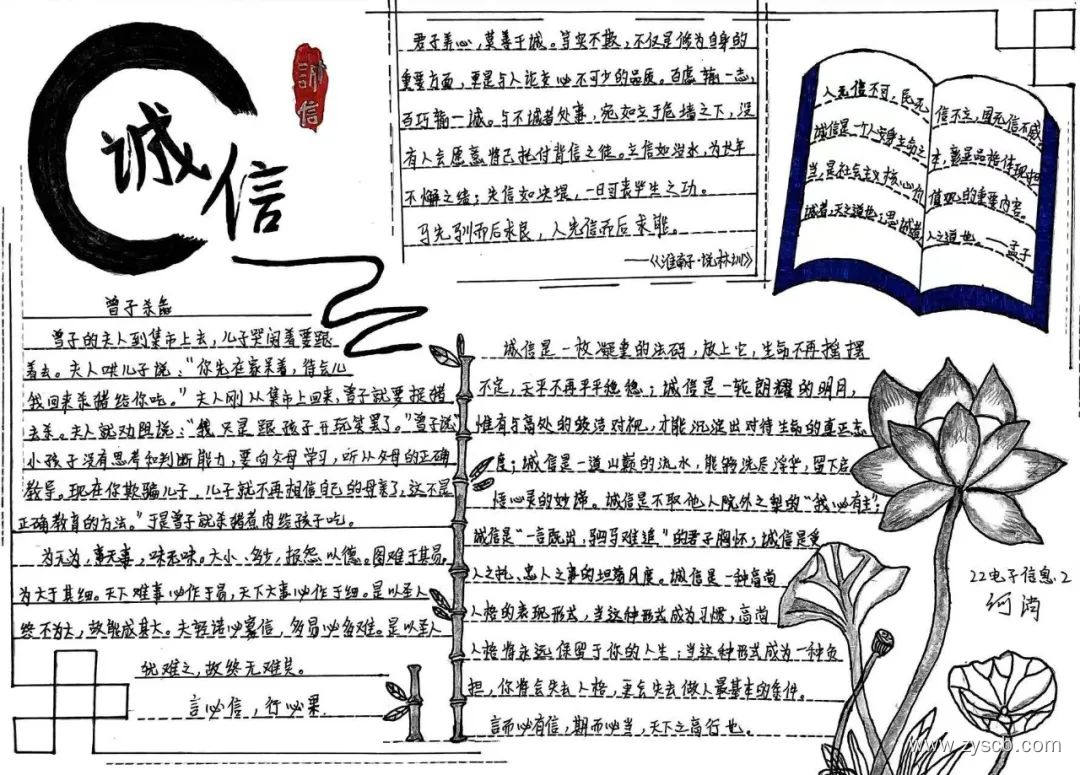 诚信
誠信
君子养心，莫善于诚。笃实不欺，不仅是修为自身的
重要方面，更是与人论交必不可少的品质。百虑输一志，
百巧输一诚。与不诚者处事，宛如立于危墙之下，没
有人会愿意将己托付背信之徒。立信如治水，为长年
不懈之绩；失信如决堤，一日可丧半生之功。
马先驯而后求良，人先信而后求能。
——《淮南子·说林训》
人无信不可，民无
诚信是一个人安身立命之
当，是社会主义核心价
诚者，天之道也；思诚者
信不立，国无信不威
本，彰显品格体现担
值观的重要内容。
人之道也。——孟子
曾子杀彘
曾子的夫人到集市上去，儿子哭闹着要跟
着去。夫人哄儿子说：“你先在家呆着，待会儿
我回来杀猪给你吃。”夫人刚从集市上回来，曾子就要捉猪
去杀。夫人就劝阻说：“我只是跟孩子开玩笑罢了。”曾子说
小孩子没有思考和判断能力，要向父母学习，听从父母的正确
教导。现在你欺骗儿子，儿子就不再相信自己的母亲了，这不是
正确教育的方法。”于是曾子就杀猪煮肉给孩子吃。
为无为，事无事，味无味。大小、多少，报怨以德。图难于其易，
为大于其细。天下难事必作于易，天下大事必作于细。是以圣人
终不为大，故能成其大。夫轻诺必寡信，多易必多难。是以圣人
犹难之，故终无难矣。
言必信，行必果
诚信是一枚凝重的法码，放上它，生命不再摇摆
不定，天平不再平平稳稳；诚信是一轮朗耀的明月，
惟有与高处的皎洁对视，才能沉淀出对待生命的真正态
度；诚信是一道山巅的流水，能够洗尽浮华，留下启
悟心灵的妙谛。诚信是不取他人院外之梨的“我心有主”
诚信是“一言既出，驷马难追”的君子胸怀；诚信是受
人之托、忠人之事的坦荡风度。诚信是一种高尚
人格的表现形式，当这种形式成为习惯，高尚
人格将永远保留于你的人生；当这种形式成为一种负
担，你将会失去人格，更会失去做人最基本的条件。
言而必有信，期而必当，天下之高行也。
22电子信息2
何
www.zyscb.com